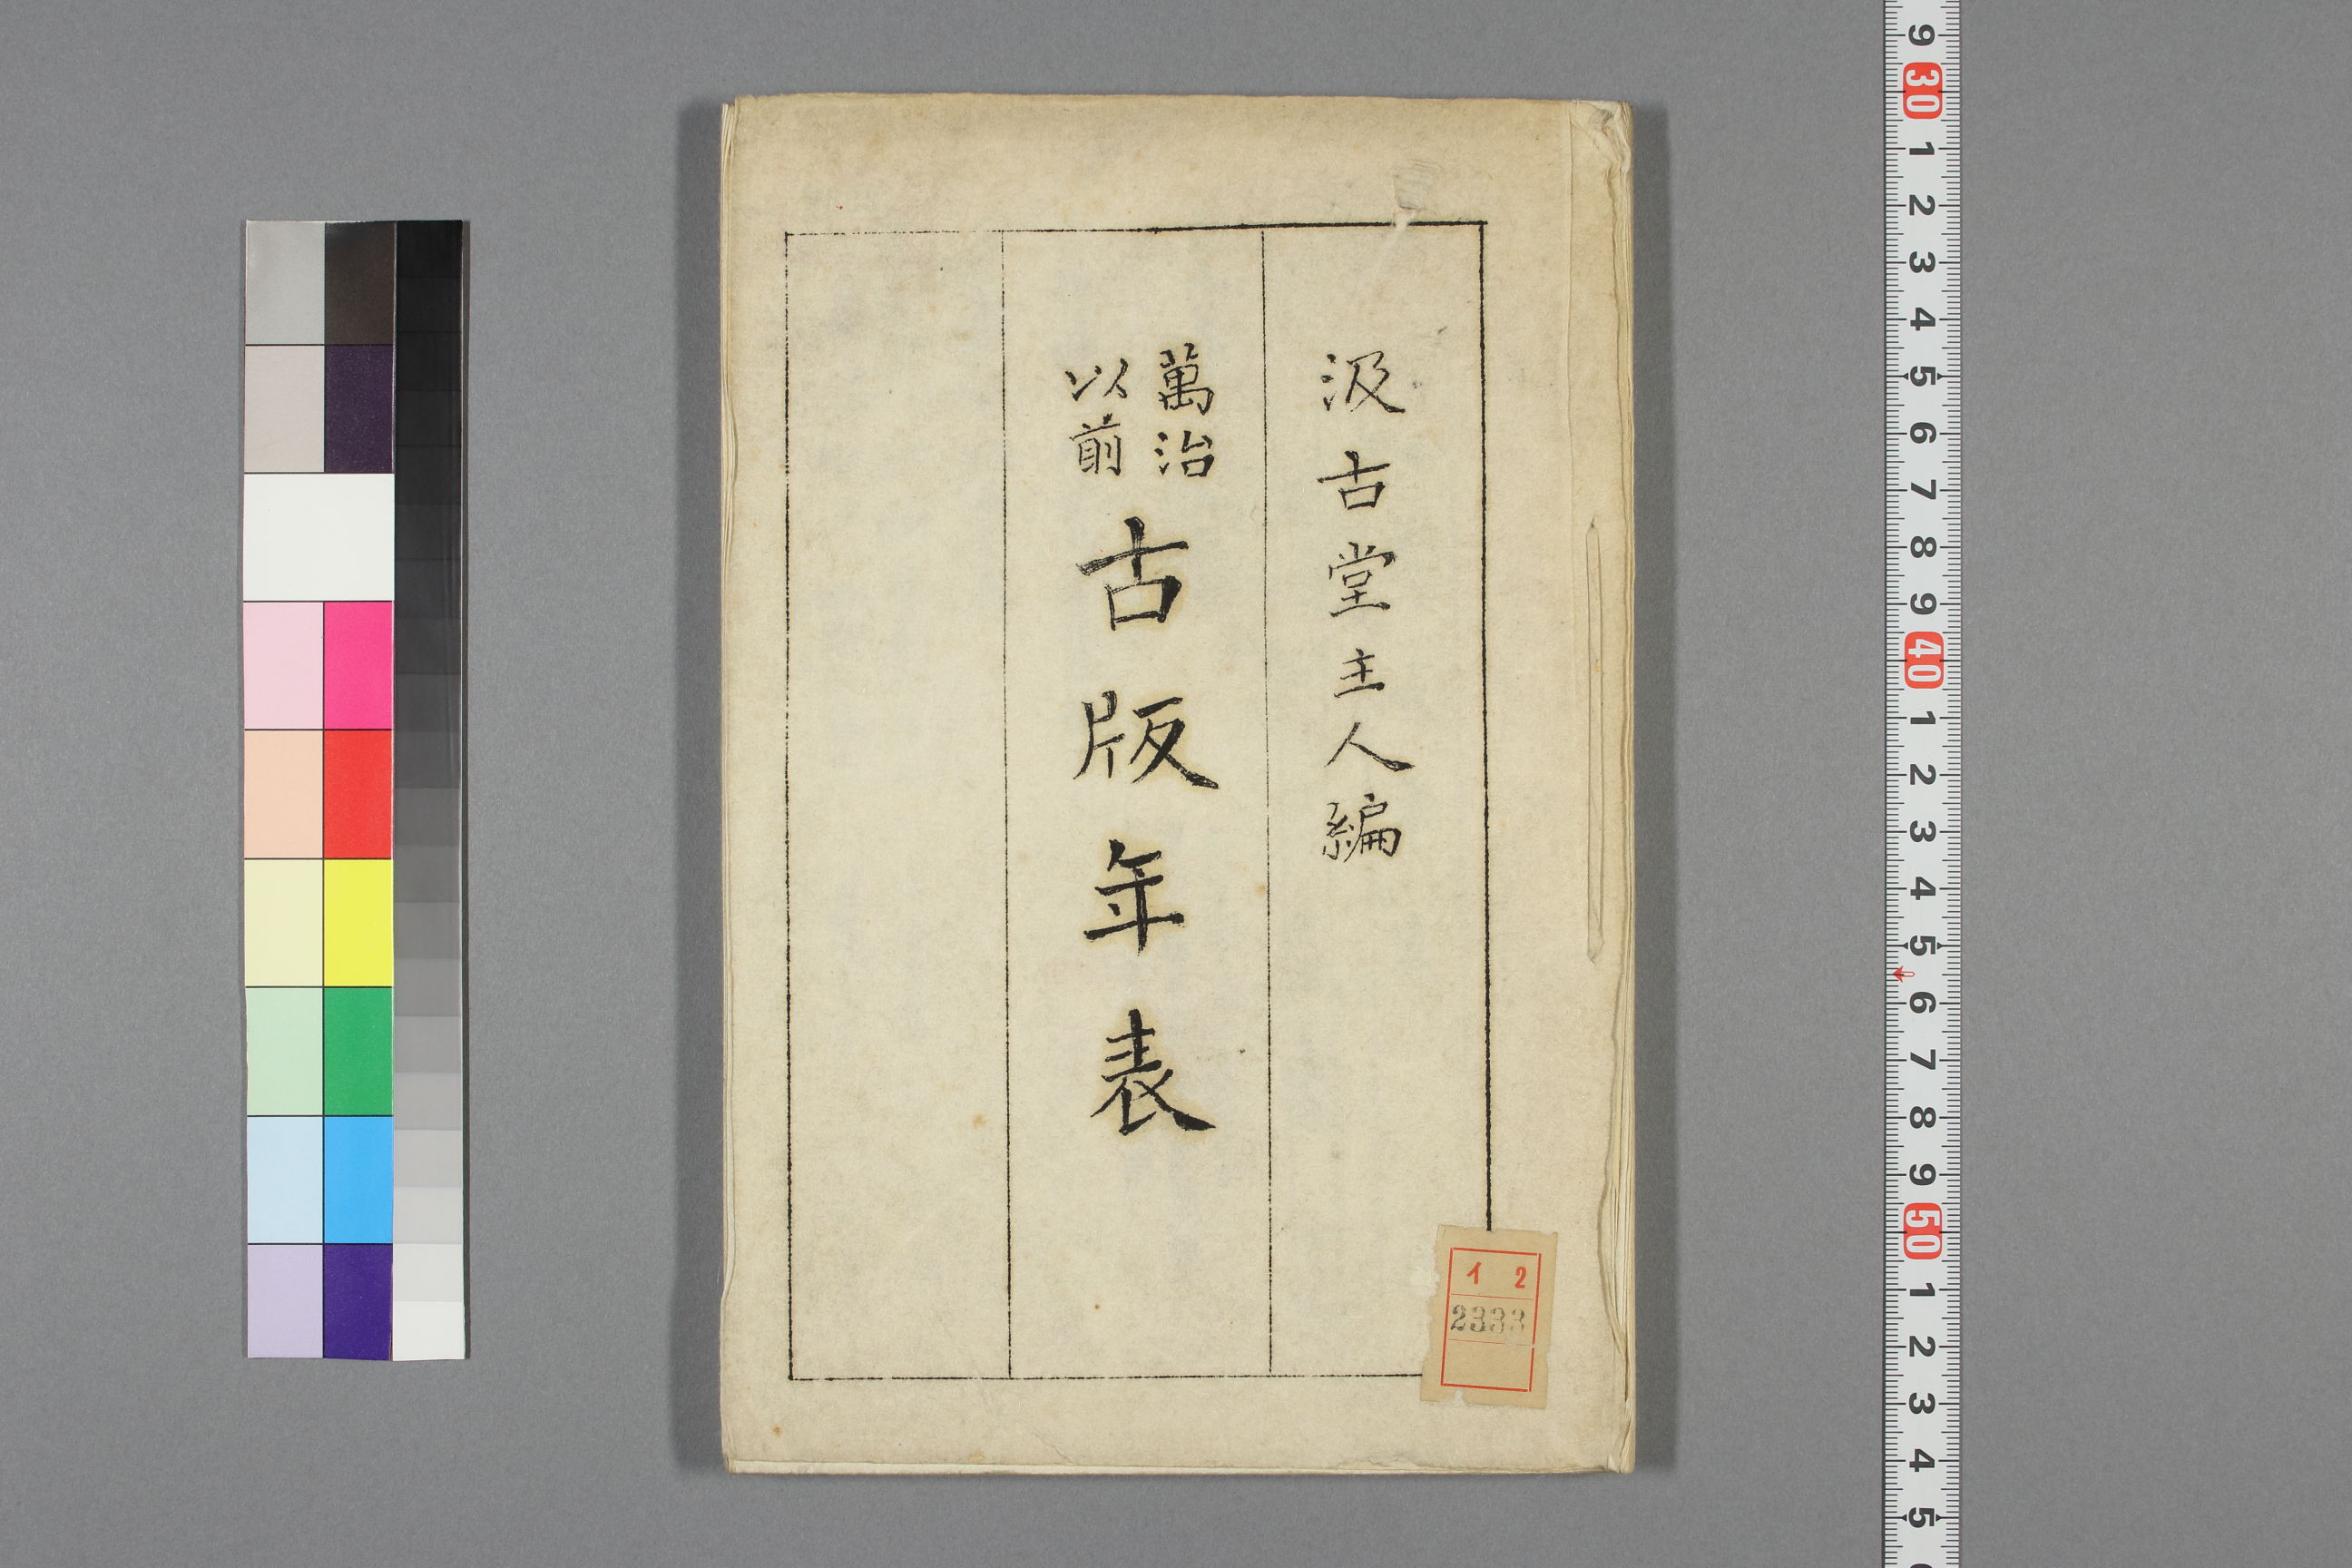 汲古堂主人編
萬治
以前
古版年表
1 2
2333
9
30
1
2
3
4
5
6
7
8
9
40
1
2
3
4
5
6
7
8
9
50
1
2
3
4
5